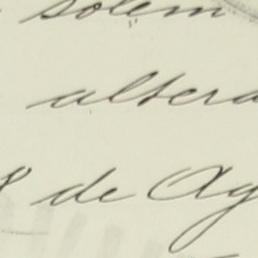 solem
altera
de Ag